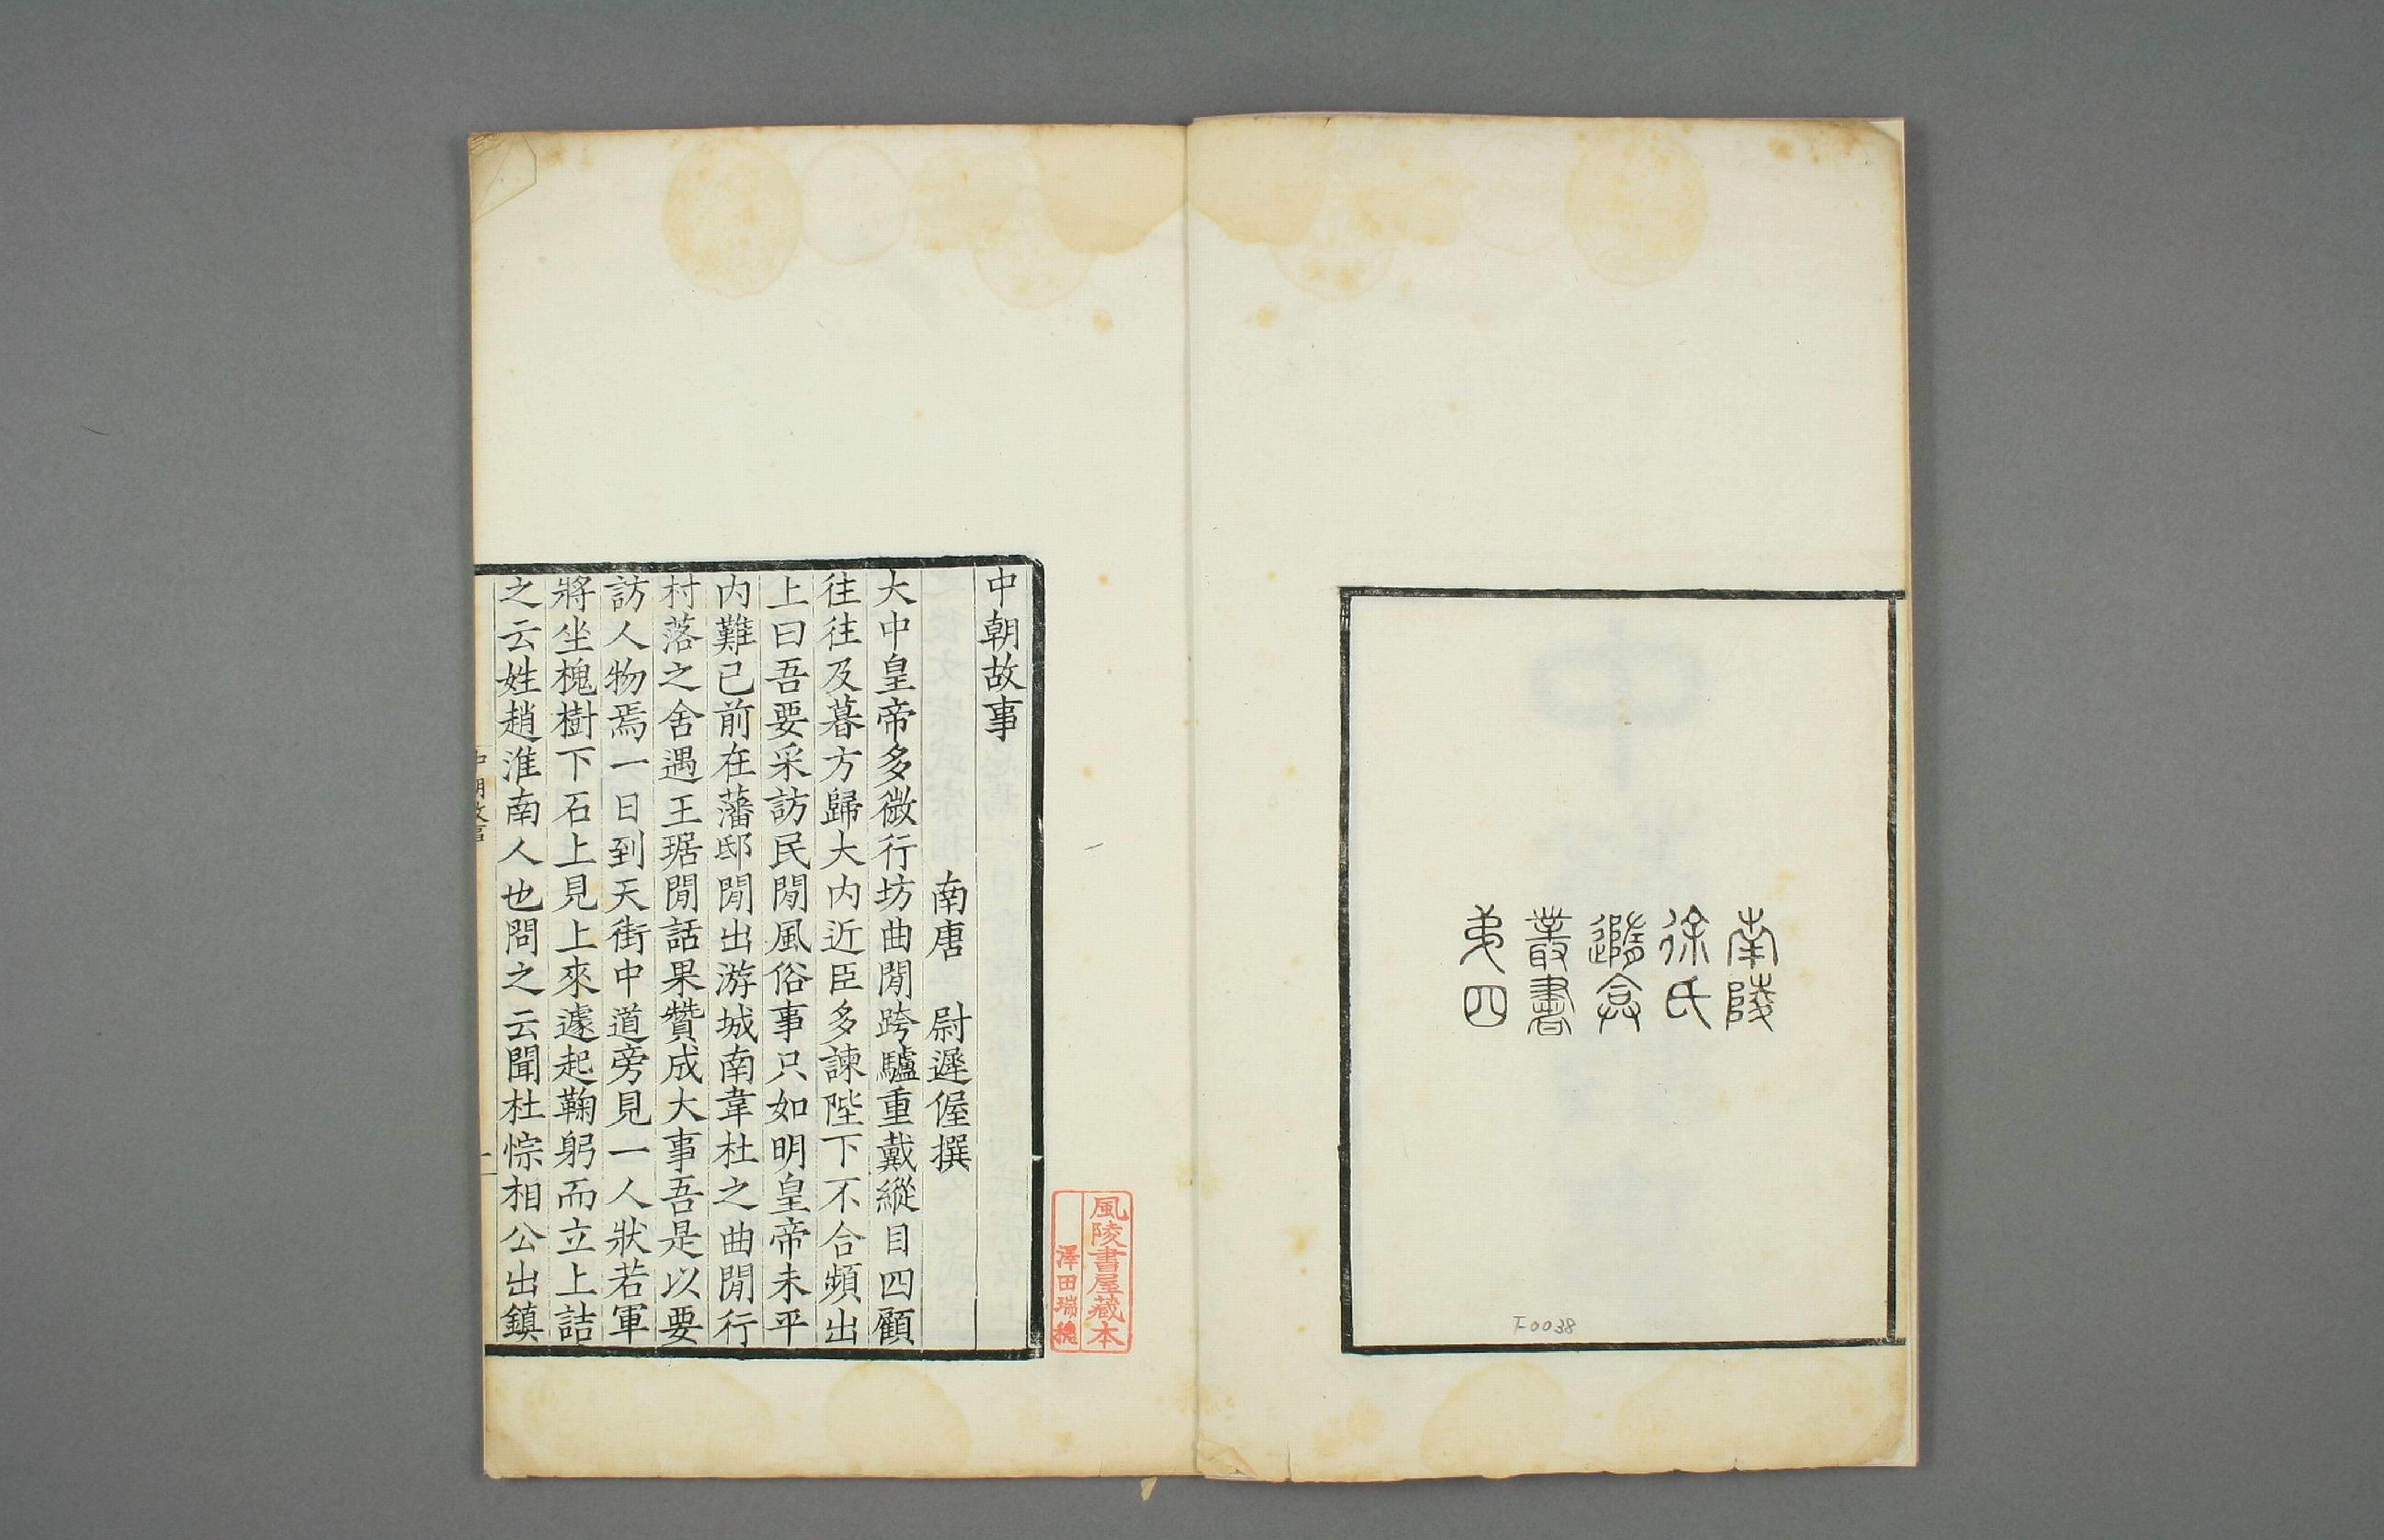 南陵
徐氏
隨盦
叢書
弟四
F-0038
風陵書屋藏本
澤田瑞穗
中朝故事
南唐 尉遲偓撰
大中皇帝多微行坊曲閒跨驢重戴縱目四顧
往往及暮方歸大内近臣多諫陛下不合頻出
上曰吾要采訪民閒風俗事只如明皇帝未平
内難已前在藩邸閒出游城南韋杜之曲閒行
村落之舍遇王琚閒話果贊成大事吾是以要
訪人物焉一日到天街中道旁見一人狀若軍
將坐槐樹下石上見上來遽起鞠躬而立上詰
之云姓趙淮南人也問之云聞杜悰相公出鎮
中朝故事
一